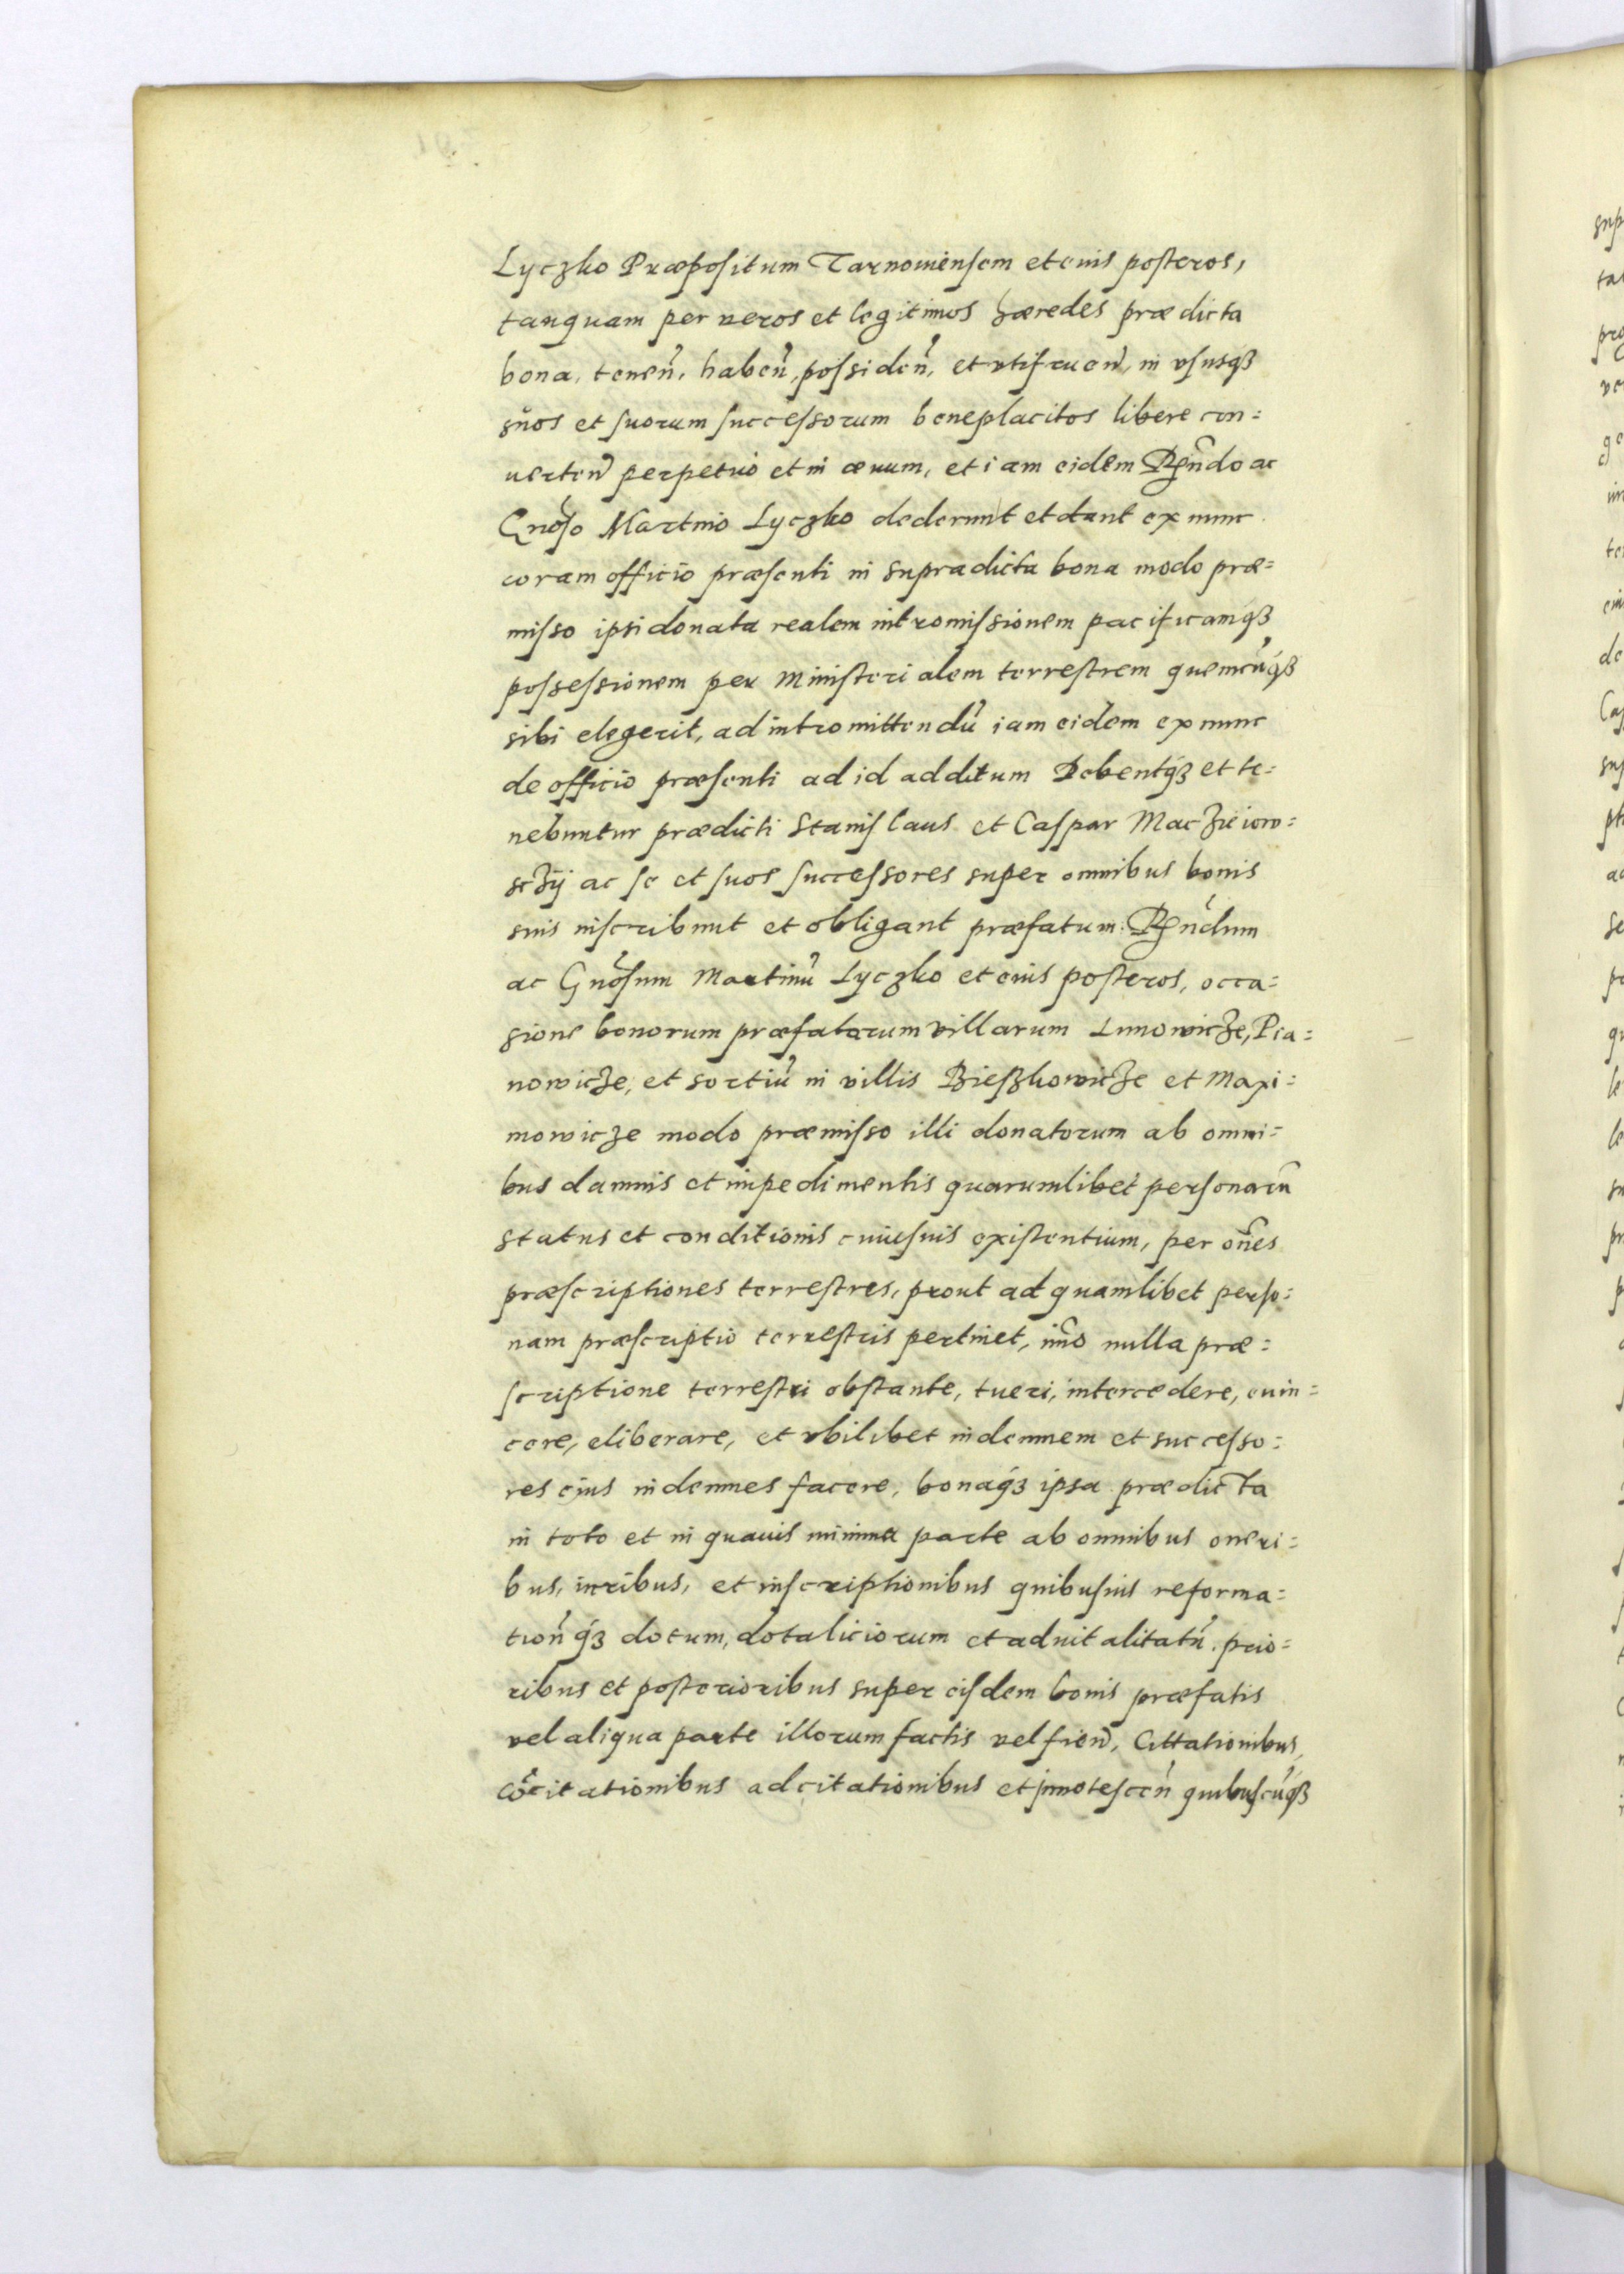 Lyczko Præpositum Tarnouiensem et euis posteros,
tanquam per veros et legitimos hæredes prædicta
bona, tenen̄, haben̄, possiden̄, et vtifruen̄, in vsusqȝ
suos et suorum successorum beneplacitos libere con=
uerten̄ perpetuo et in æuum, et iam eidem Rn̄do ac
Gn̄oso Martino Lyczko dederunt et dant ex nunc
coram officio præsenti in supradicta bona modo præ=
misso ipsi donata realem intromissionem pacificamqȝ
possessionem per Ministerialem terrestrem quemcūqȝ
sibi elegerit, ad intromittendū iam eidem ex nunc
de officio præsenti ad id additum Debentqȝ et te=
nebuntur prædicti Stanislaus et Caspar Maczieiow=
sczÿ ac se et suos successores super omnibus bonis
suis inscribunt et obligant præfatum Rn̄dum
ac Gn̄osum Martinū Lyczko et eius posteros, occa=
sione bonorum præfatorum villarum Lunowicze, Pia=
nowicze, et sortiū in villis Bieszkowicze et Maxi=
mowicze modo præmisso illi donatorum ab omni=
bus damnis et impedimentis quarumlibet personarū
status et conditionis cuiusuis existentium, per on̄es
præscriptiones terrestres, prout ad quamlibet perso=
nam præscriptio terrestris pertinet, im̄o nulla præ=
scriptione terrestri obstante, tueri, intercedere, euin=
cere, eliberare, et vbilibet indemnem et successo=
res ejus indemnes facere, bonaqȝ ipsa prædicta
in toto et in quauis minima parte ab omnibus oneri=
bus, iuribus, et inscriptionibus quibusuis reforma=
tion̄qȝ dotum, dotaliciorum et aduitalitatū prio=
ribus et posterioribus super eisdem bonis præfatis
vel aliqua parte illorum factis vel fien̄, Cittationibus,
co͞ncitationibus adcitationibus et innotescen̄ quibuscūqȝ